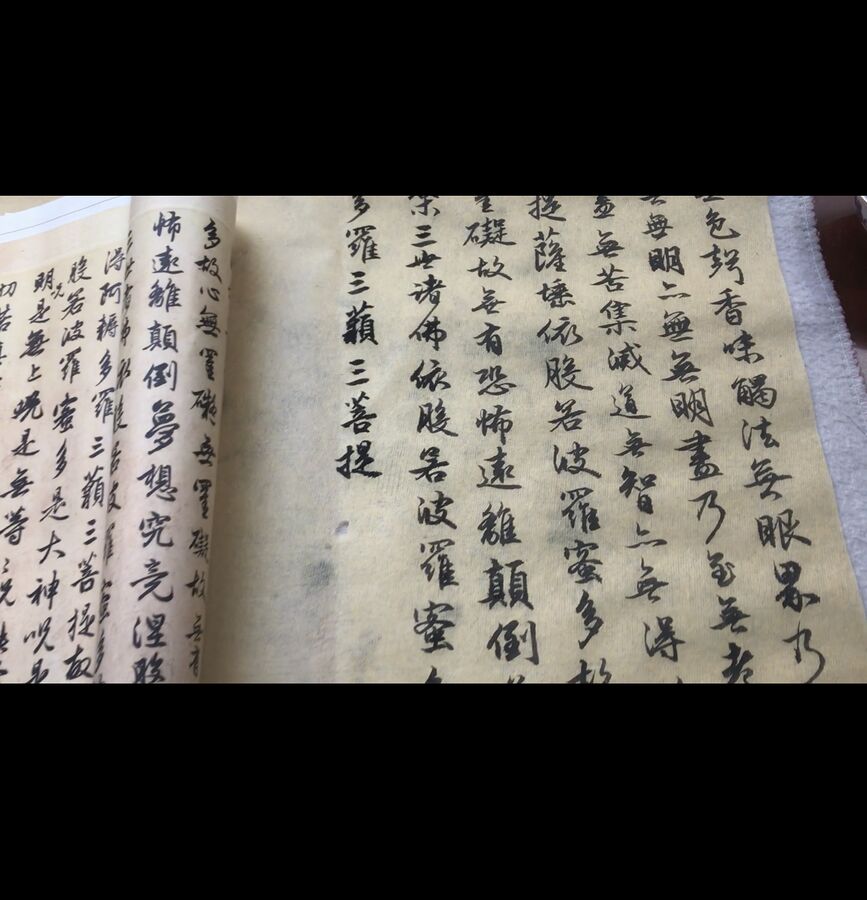 色聲香味觸法無眼界乃
無明亦無無明盡乃至無老
盡無苦集滅道無智亦無得
提薩埵依般若波羅蜜多故
罣礙故無有恐怖遠離顛倒
槃三世諸佛依般若波羅蜜
多羅三藐三菩提
多故心無罣礙無罣礙故無有
怖遠離顛倒夢想究竟涅般
三世諸佛依般若波羅蜜多
得阿耨多羅三藐三菩提故
般若波羅蜜多是大神呪是
明呪是無上呪是無等〻呪
切苦真